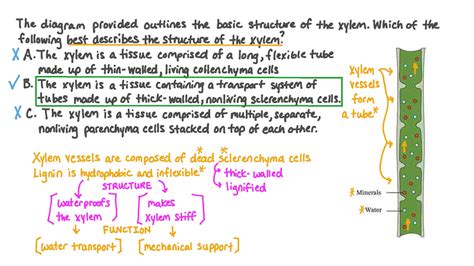 The diagram provided outlines the basic structure of the xylem. Which of the
following best describes the structure of the xylem?
X A. The xylem is a tissue comprised of a long, flexible tube
made up of thin-walled, living collenchyma cells
✓ B. The xylem is a tissue containing a transport system of
tubes made up of thick-walled, nonliving sclerenchyma cells.
X C. The xylem is a tissue comprised of multiple, separate,
nonliving parenchyma cells stacked on top of each other.
xylem
vessels
form
a tube*
Xylem vessels are composed of dead sclerenchyma cells
Lignin is hydrophobic and inflexible*
thick-walled
lignified
STRUCTURE
waterproofs
the xylem
makes
xylem stiff
FUNCTION
[water transport]
[mechanical support]
* Minerals
* Water